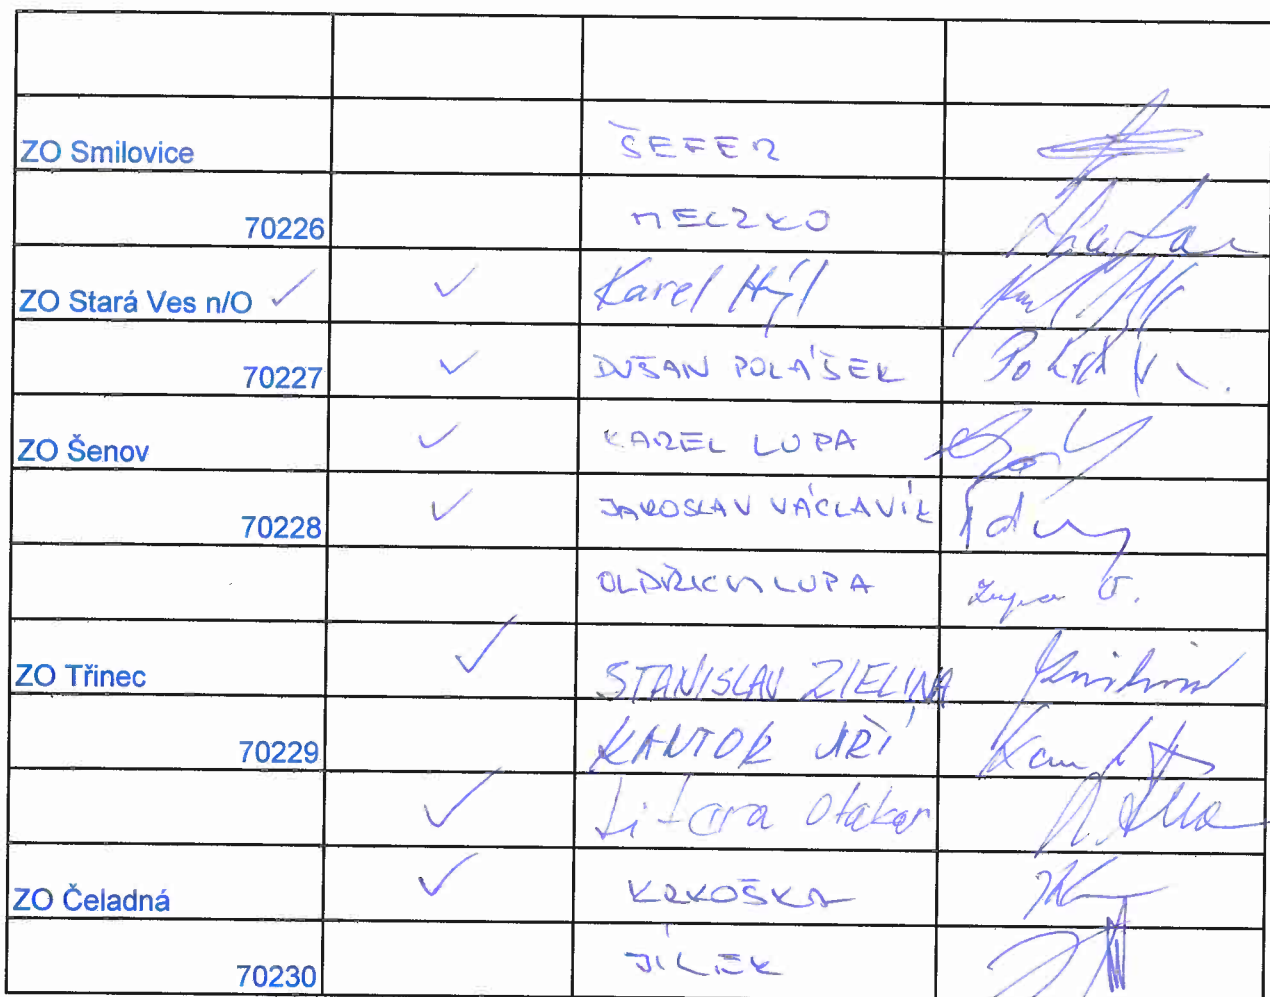 ZO Smilovice ŠEFER
70226 MECZKO
ZO Stará Ves n/O ✓ ✓ Karel Hýl
70227 ✓ DUŠAN POLÁŠEK
ZO Šenov ✓ KAREL LUPA
70228 ✓ JAROSLAV VÁCLAVÍK
OLDŘICH LUPA Lupa O.
ZO Třinec ✓ STANISLAV ZIELINA
70229 KANTOR JIŘÍ
✓ Otakar
ZO Čeladná ✓ KRKOŠKA
70230 JÍLEK